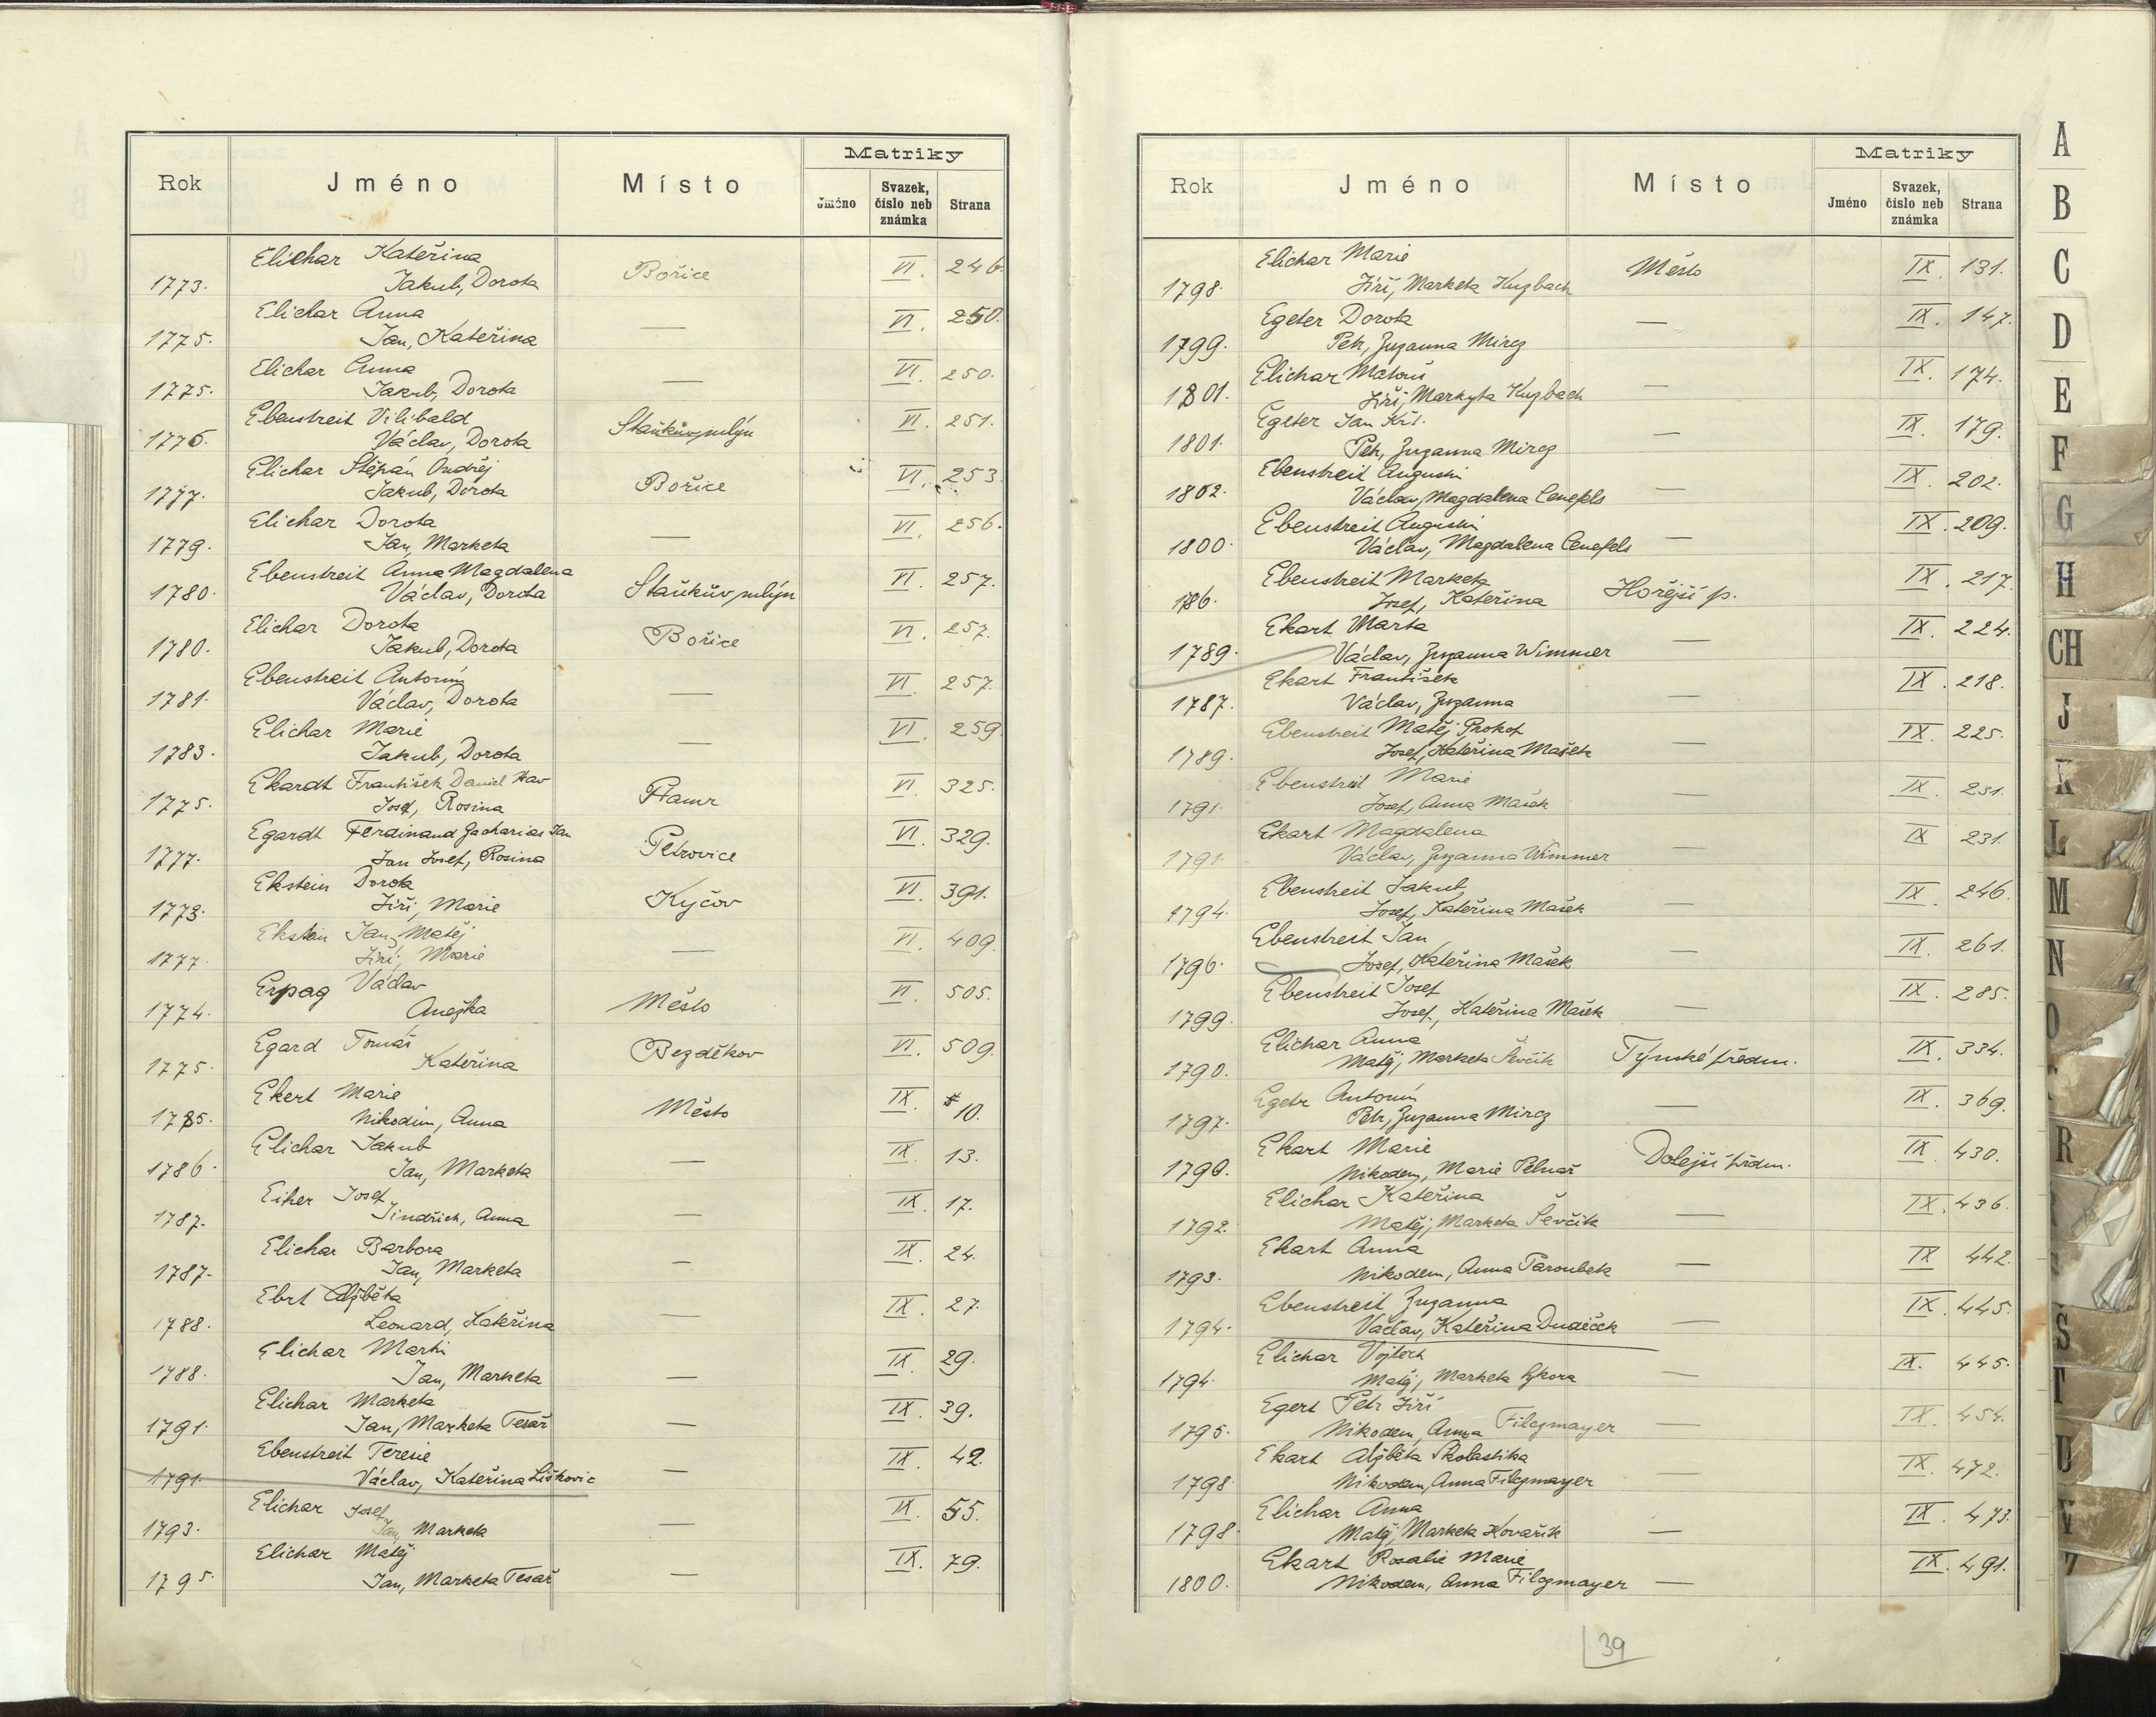 Matriky
Rok Jméno Místo Jméno Svazek, číslo neb známka Strana
Elichar Kateřina
1773. Jakub, Dorota Bořice VI. 246.
Elichar Anna
1775. Jan, Kateřina — VI. 250.
Elichar Anna
1775. Jakub, Dorota — VI. 250.
Ebenstreit Vilibald
1776. Václav, Dorota Staňkův mlýn VI. 251.
Elichar Štěpán Ondřej
1777. Jakub, Dorota Bořice VI. 253.
Elichar Dorota
1779. Jan, Marketa — VI. 256.
Ebenstreit Anna Magdalena
1780. Václav, Dorota Staňkův mlýn VI. 257.
Elichar Dorota
1780. Jakub, Dorota Bořice VI. 257.
Ebenstreit Antonín
1781. Václav, Dorota — VI. 257.
Elichar Marie
1783. Jakub, Dorota — VI. 259.
Ekardt František Daniel
1775. Josef, Rosina VI. 325.
Egardt Ferdinand Zacharias Jan
1777. Jan Josef, Rosina Petrovice VI. 329.
Ekstein Dorota
1773. Jiří, Marie Kyčov VI. 391.
Ekstein Jan Matěj
1777. Jiří, Marie — VI. 409.
Erpag Václav
1774. Anežka Město VI. 505.
Egard Tomáš
1775. Kateřina Bezděkov VI. 509.
Ekert Marie
1785. Nikodim, Anna Město IX. 10.
Elichar Jakub
1786. Jan, Marketa — IX. 13.
Eiher Josef
1787. Jindřich, Anna — IX. 17.
Elichar Barbora
1787. Jan, Marketa — IX. 24.
Ebrt Alžběta
1788. Leonard, Kateřina — IX. 27.
Elichar Martin
1788. Jan, Marketa — IX. 29.
Elichar Marketa
1791. Jan, Marketa Tesař — IX. 39.
Ebenstreit Teresie
1791. Václav, Kateřina Liškovic — IX. 42.
Elichar Josef
1793. Jan, Marketa — IX. 55.
Elichar Matěj
1795. Jan, Marketa Tesař — IX. 79.
Matriky
Rok Jméno Místo Jméno Svazek, číslo neb známka Strana
Elichar Marie
1798. Jiří, Marketa Kuzbach Město IX. 131.
Egeter Dorota
1799. Petr, Zuzanna Mircz — IX. 147.
Elichar Matouš
1801. Jiří, Markyta Kuzbach — IX. 174.
Egeter Jan Křt.
1801. Petr, Zuzanna Mircz — IX. 179.
Ebenstreit Augustin
1802. Václav, Magdalena Cenefels — IX. 202.
Ebenstreit Augustin
1800. Václav, Magdalena Cenefels — IX. 209.
Ebenstreit Marketa
186. Josef, Kateřina Hořejší p. IX. 217.
Ekart Marta
1789. Václav, Zuzanna Wimmer — IX. 224.
Ekart František
1787. Václav, Zuzanna — IX. 218.
Ebenstreit Matěj Prokop
1789. Josef, Kateřina Mašek — IX. 225.
Ebenstreit Marie
1791. Josef, Anna Mašek — IX. 231.
Ekart Magdalena
1791. Václav, Zuzanna Wimmer — IX 231.
Ebenstreit Jakub
1794. Josef, Kateřina Mašek — IX. 246.
Ebenstreit Jan
1796. Josef, Kateřina Mašek — IX. 261.
Ebenstreit Josef
1799. Josef, Kateřina Mašek — IX. 285.
Elichar Anna
1790. Matěj, Marketa Ševčik Týnské předm. IX. 334.
Egetr Antonín
1797. Petr, Zuzanna Mircz — IX. 369.
Ekart Marie
1790. Nikodem, Marie Pelnař Dolejší předm. IX. 430.
Elichar Kateřina
1792. Matěj, Marketa Ševčik — IX. 436.
Ekart Anna
1793. Nikodem, Anna Paroubek — IX 442.
Ebenstreit Zuzanna
1794. Vaclav, Kateřina Dudáček — IX. 445.
Elichar Vojtěch
1794. Matěj, Marketa — IX. 445.
Egert Petr Jiří
1795. Nikodem, Anna Filczmayer — IX. 454.
Ekart Alžběta Školastika
1798. Nikodem, Anna Filczmayer — IX. 472.
Elichar Anna
1798. Matěj, Marketa Kovařik — IX. 473.
Ekart Rosalie Marie
1800. Nikodem, Anna Filczmayer — IX. 491.
39
A
B
C
D
E
F
G
H
CH
J
K
L
M
N
O
R
Š
T
U
V